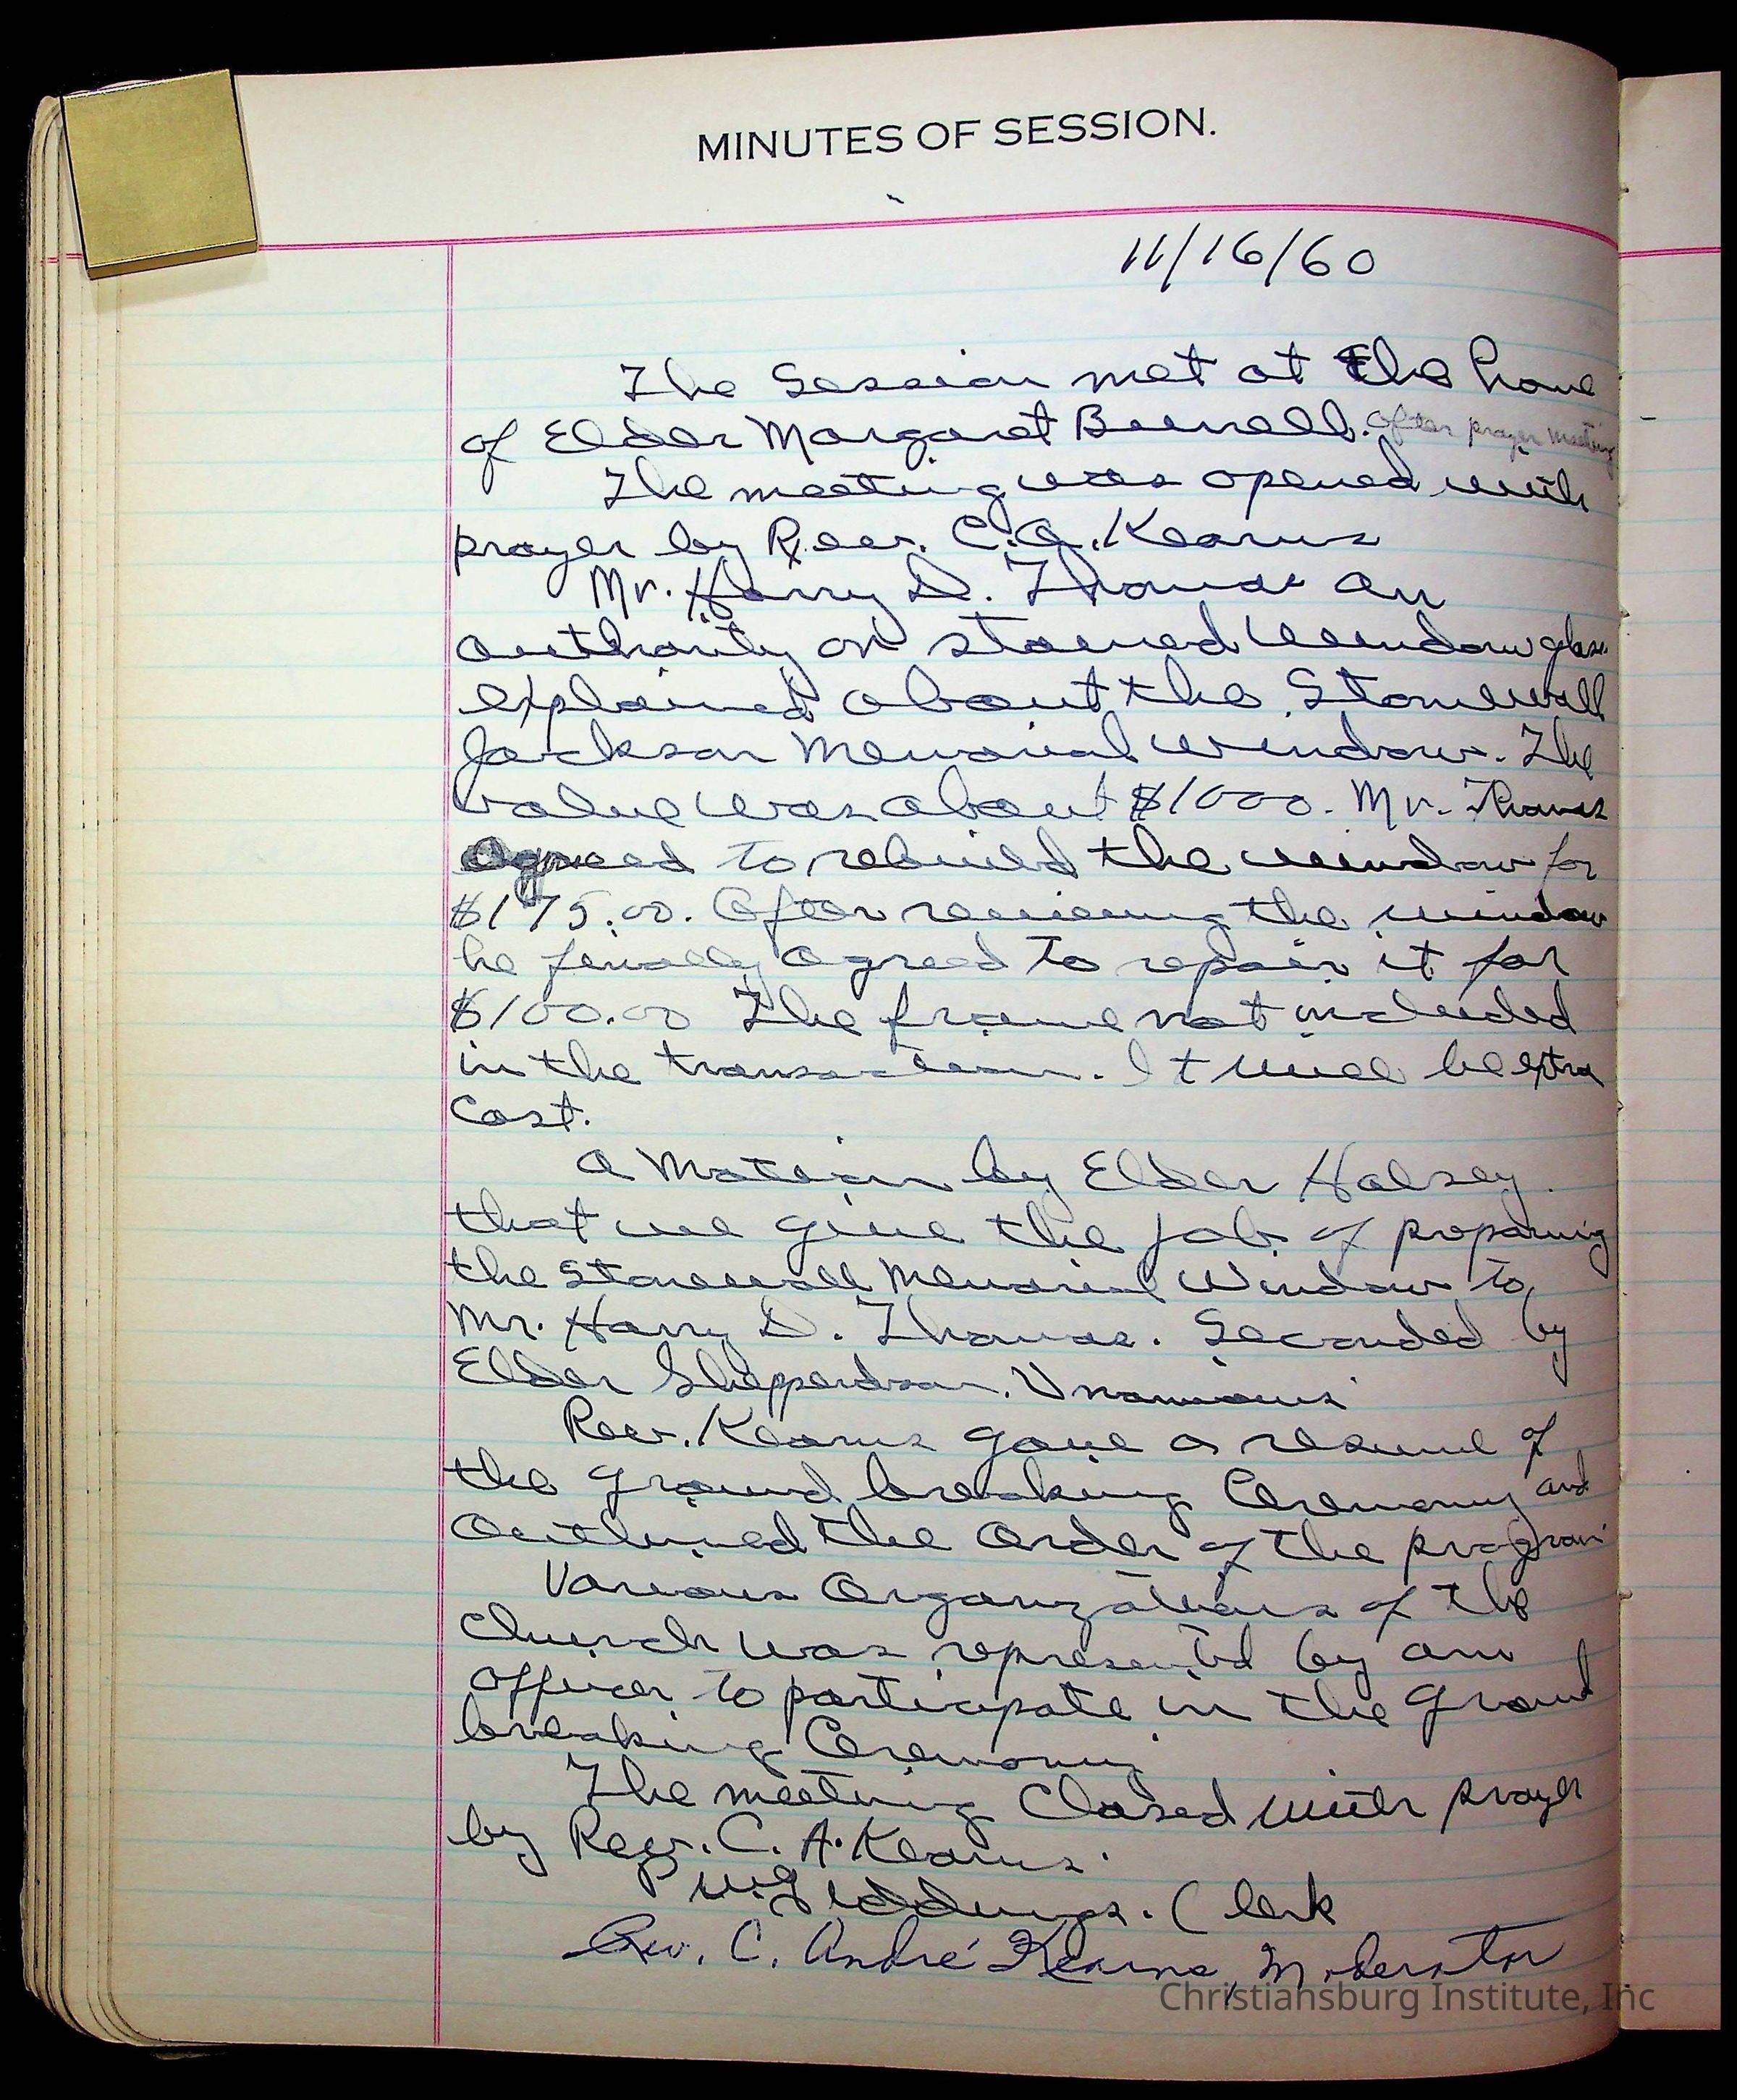 MINUTES OF SESSION.
11/16/60
The Session met at the home
of Elder Margaret Burrell. after prayer meeting
The meeting was opened with
prayer by Rev. C.A. Kearns
Mr. Harry D. Thomas an
authority on stained window glass
explained about the Stonewall
Jackson Memorial window. The
value was about $1000. Mr. Thomas
agreed to rebuild the window for
$175.00. After reviewing the window
he finally agreed to repair it for
$100.00 The frame not included
in the transaction. It will be extra
cost.
A Motion by Elder Halsey
that we give the job of preparing
the Stonewall Memorial Window to
Mr. Harry D. Thomas. Seconded by
Elder Shepperdson. Unamious
Rev. Kearns gave a resume of
the ground breaking Ceremony and
Outlined the Order of the program
Various Organizations of the
Church was represented by an
officer to participate in the Ground
breaking Ceremony
The meeting Closed with prayer
by Rev. C. A. Kearns.
Giddings. Clerk
Rev. C. André Kearns, Moderator
Christiansburg Institute, Inc